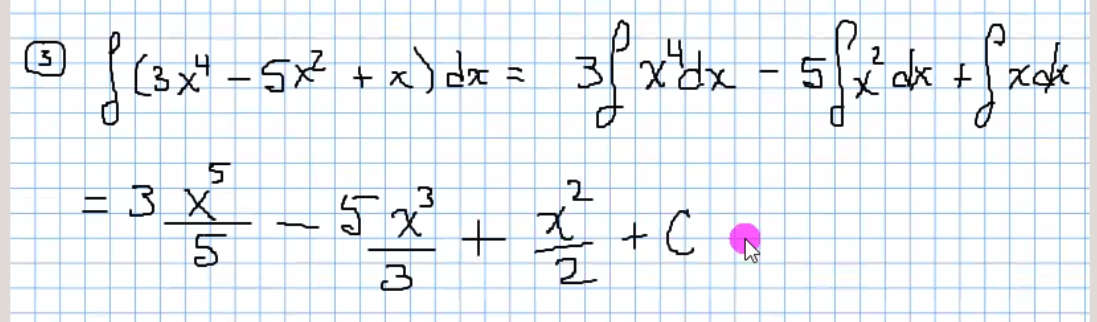 3 ∫(3x⁴ − 5x² + x)dx = 3∫x⁴dx − 5∫x²dx + ∫xdx
= 3 x⁵/5 − 5 x³/3 + x²/2 + C